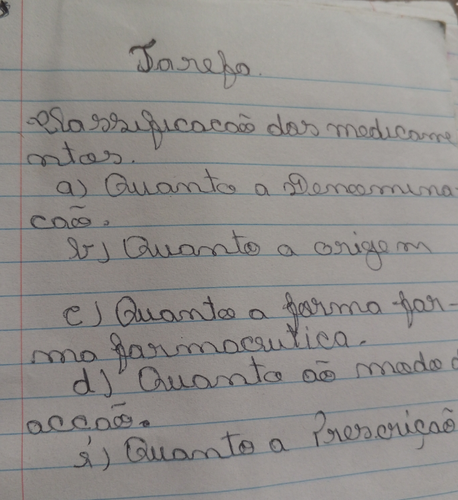 Tarefa.
-Classificacaõ das medicame
ntos.
a) Quanto a Denomina-
caõ.
b) Quanto a origem
c) Quanto a forma far-
ma farmaceutica.
d) Quanto aõ modo d
accaõ.
é) Quanto a Prescriçaõ